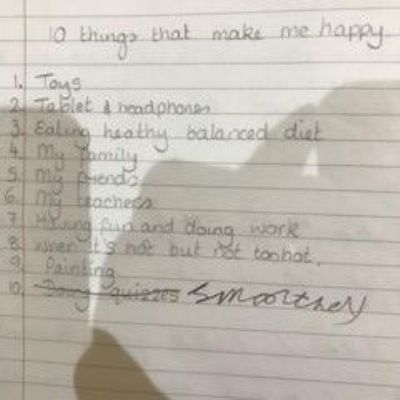 10 things that make me happy
1. Toys
2. Tablet & headphones
3. Eating heathy balanced diet
4. My family
5. My friends
6. My teachers
7. Having fun and doing work
8. when it's hot but not too hot.
9. Painting
10. Doing quizzes